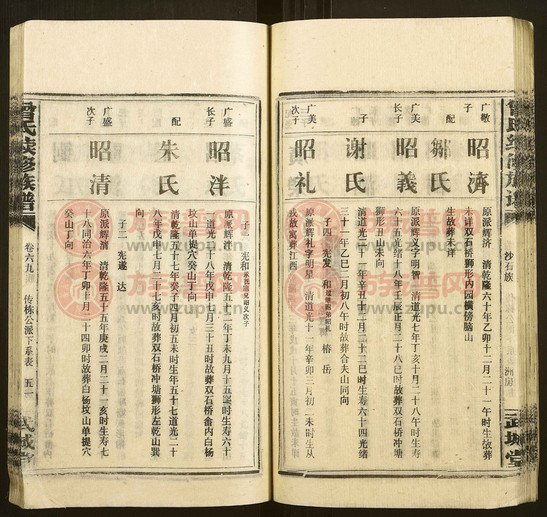 武城堂
沙石族
广敬
子
昭济
原派辉济 清乾隆六十年乙卯十二月二十一午时生故葬
未详双石桥狮形内园横傍脑山
配
生故葬未详
广美
长子
昭义
原派辉义字明智 清道光七年丁亥十月二十八午时生寿
六十五光绪十八年壬辰正月二十八巳时故葬双石桥冲塘
狮形丑山未向
子
谢氏
清道光二十一年辛丑十二月二十二巳时生寿六十四光绪
三十一年乙巳二月初八午时故葬合夫山同向
子四 宪发 和 椿 岳
广美
次子
昭礼
原派辉礼字明星 清道光十一年辛卯三月初二未时生从
戎故寓葬江西
子一 宪和
广盛
长子
昭洋
原派辉洋 清乾隆五十二年丁未九月十五寅时生寿六十
二道光二十八年戊申七月三十丑时故葬双石桥畲内白杨
坟山单提穴癸山丁向
配
朱氏
清乾隆五十七年壬子四月初五未时生年五十七道光二十
八年戊申七月二十七亥时故葬双石桥冲塘狮形左乾山巽
向
子二 宪遂 达
广盛
次子
昭清
原派辉清 清乾隆五十五年庚戌二月二十一亥时生寿七
十八同治六年丁卯十月二十四卯时故葬白杨坟山单提穴
癸山丁向
曾氏续修族谱
卷六九
传栋公派下系表
五一
武城堂